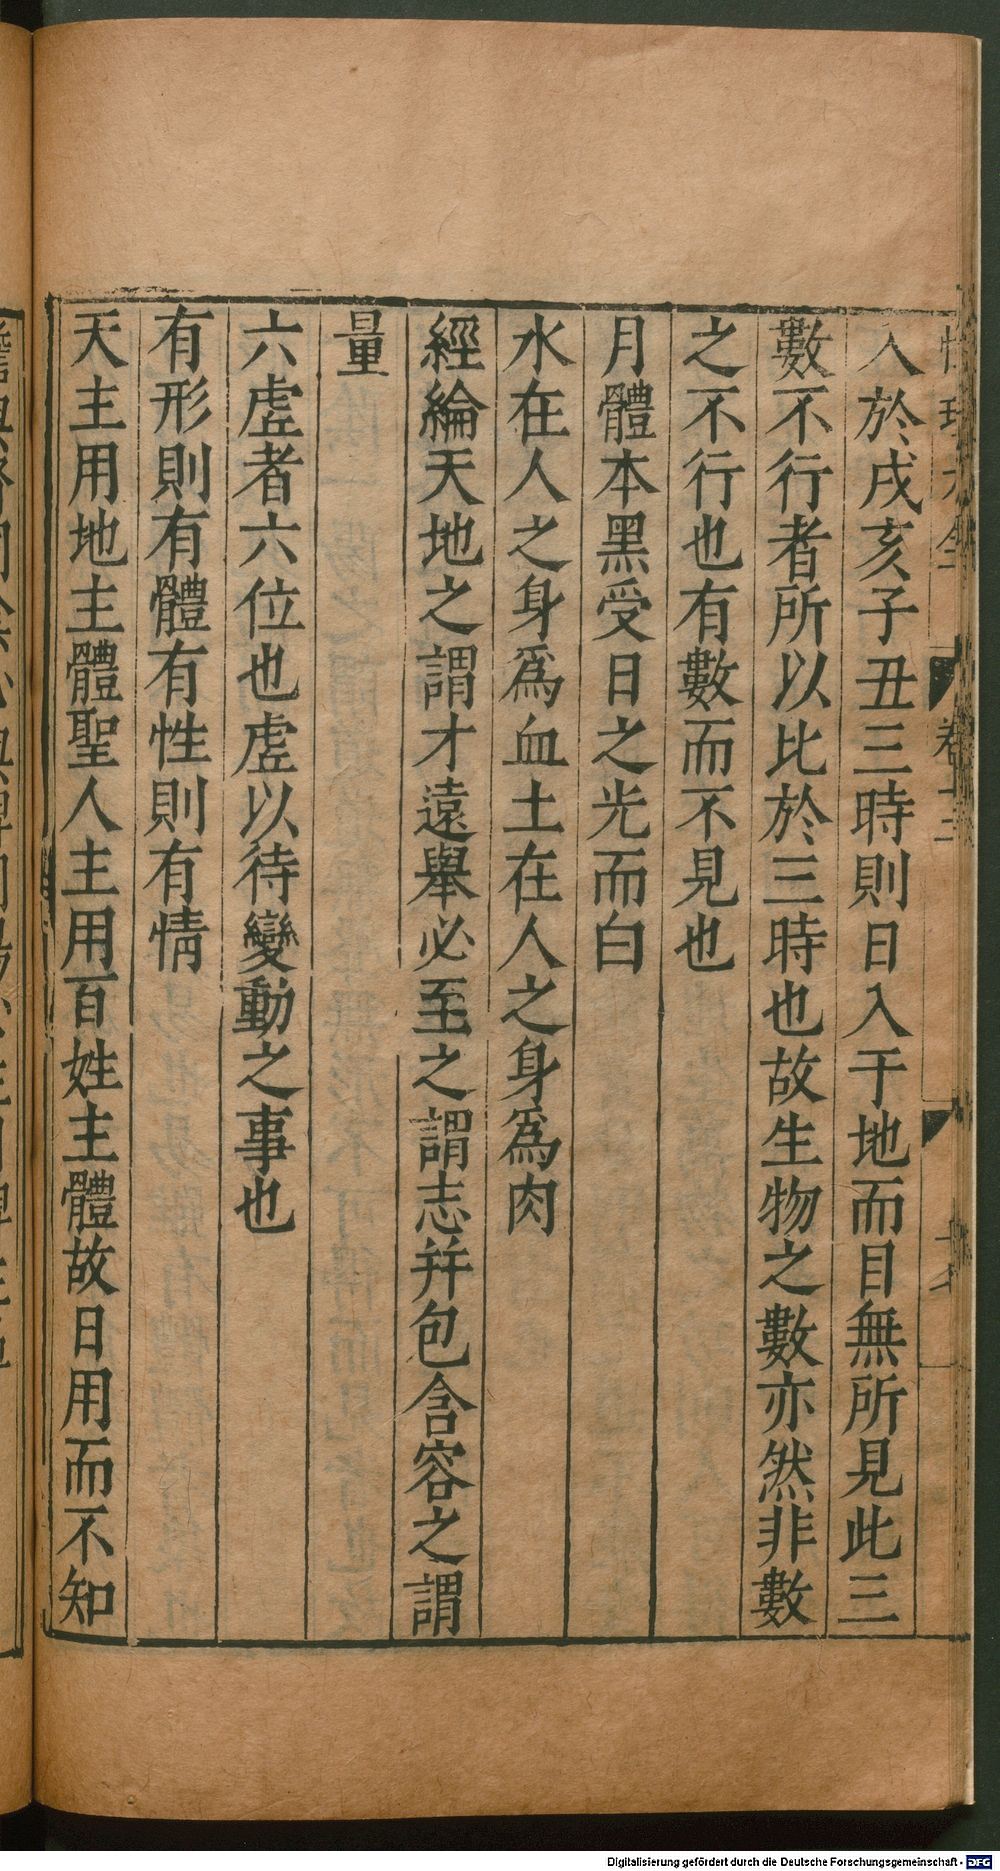 入於戌亥子丑三時則日入于地而目無所見此三
數不行者所以比於三時也故生物之數亦然非數
之不行也有數而不見也
月體本黑受日之光而白
水在人之身爲血土在人之身爲肉
經綸天地之謂才遠舉必至之謂志并包含容之謂
量
六虛者六位也虛以待變動之事也
有形則有體有性則有情
天主用地主體聖人主用百姓主體故日用而不知
Digitalisierung gefördert durch die Deutsche Forschungsgemeinschaft - DFG